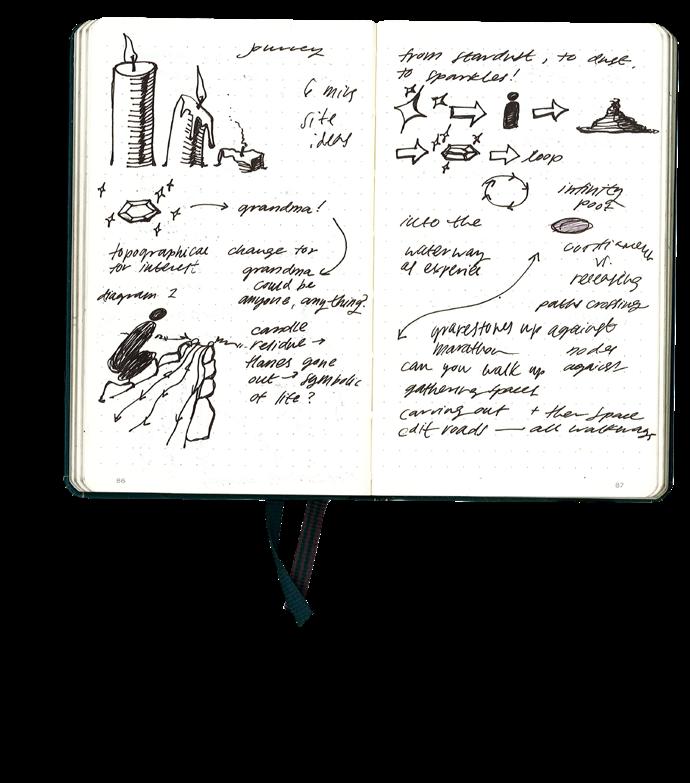 journey
6 mins
site
ideas
grandma!
topographical change for
for interest grandma
could be
anyone, anything?
diagram 2
candle
residue →
flames gone
out → symbolic
of life?
86
from stardust, to dust,
to sparkles!
loop
infinity
pool
into the
waterway
continement
vs.
releasing
paths crossing
gravestones up against
marathon nodes
can you walk up against
gathering spaces
carving out + then space
edit roads — all walkways
87